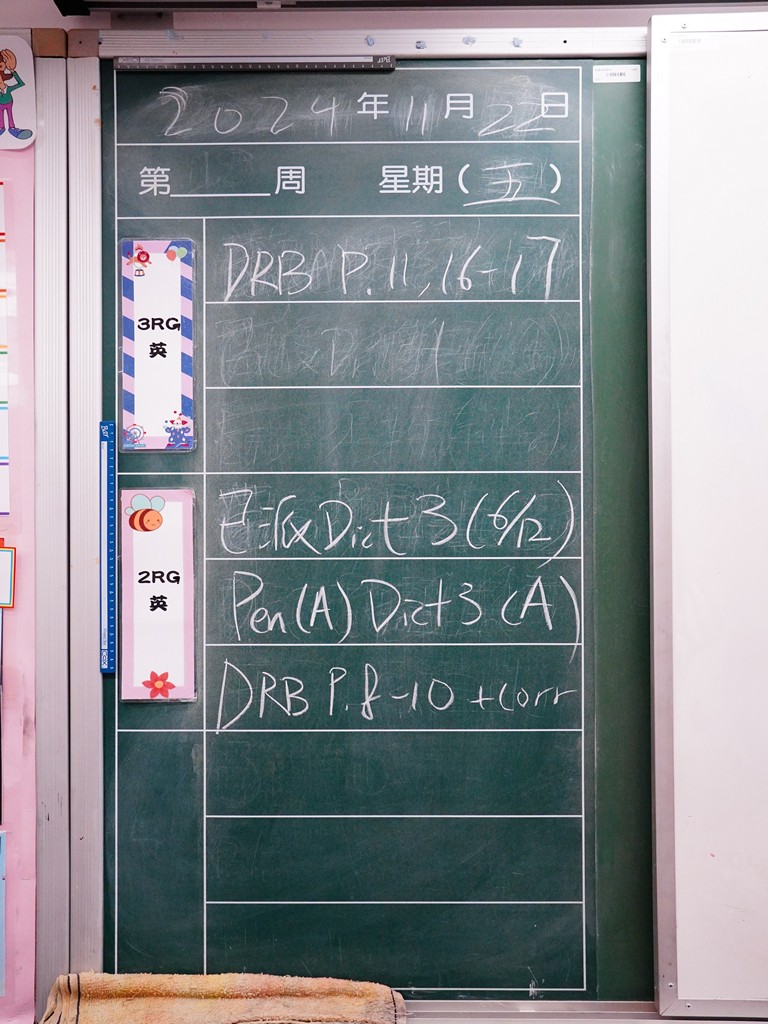 2024年11月22日
第______周 星期(五)
3RG
英
DRB P.11,16-17
2RG
英
已派 Dict 3 (6/12)
Pen(A) Dict 3 (A)
DRB P.8-10 +corr